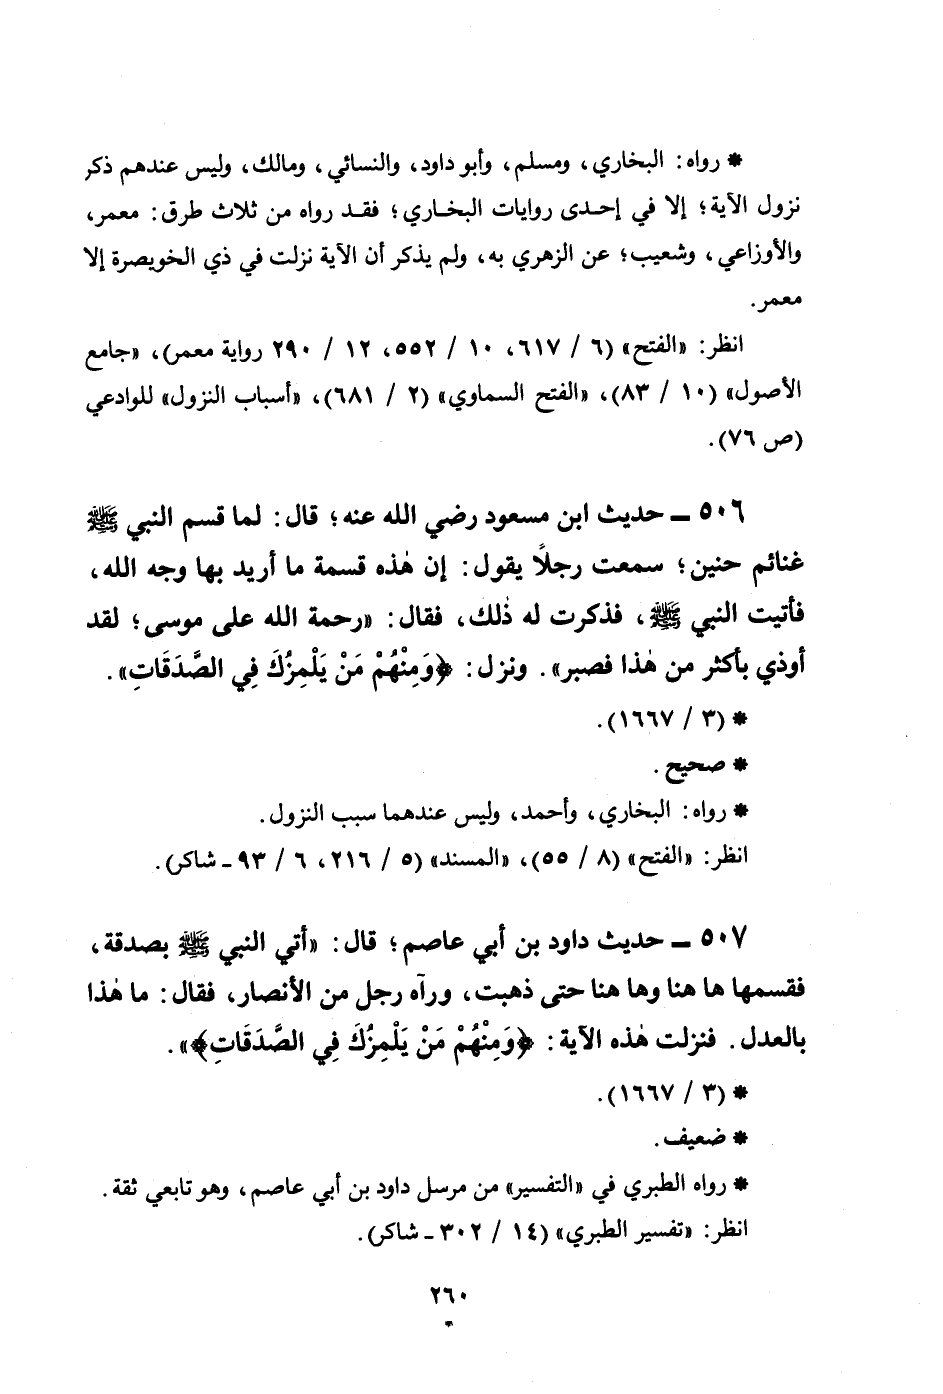 * رواه: البخاري، ومسلم، وأبو داود، والنسائي، ومالك، وليس عندهم ذكر
نزول الآية؛ إلا في إحدى روايات البخاري؛ فقد رواه من ثلاث طرق: معمر،
والأوزاعي، وشعيب؛ عن الزهري به، ولم يذكر أن الآية نزلت في ذي الخويصرة إلا
معمر.
انظر: «الفتح» (٦ / ٦١٧، ١٠ / ٥٥٢، ١٢ / ٢٩٠ رواية معمر)، «جامع
الأصول» (١٠ / ٨٣)، «الفتح السماوي» (٢ / ٦٨١)، «أسباب النزول» للوادعي
(ص ٧٦).
٥٠٦ ـ حديث ابن مسعود رضي الله عنه؛ قال: لما قسم النبي ﷺ
غنائم حنين؛ سمعت رجلًا يقول: إن هٰذه قسمة ما أريد بها وجه الله،
فأتيت النبي ﷺ، فذكرت له ذٰلك، فقال: «رحمة الله على موسى؛ لقد
أوذي بأكثر من هٰذا فصبر». ونزل: ﴿وَمِنْهُمْ مَنْ يَلْمِزُكَ فِي الصَّدَقَاتِ».
* (٣ / ١٦٦٧).
* صحيح.
* رواه: البخاري، وأحمد، وليس عندهما سبب النزول.
انظر: «الفتح» (٨ / ٥٥)، «المسند» (٥ / ٢١٦، ٦ / ٩٣ ـ شاكر).
٥٠٧ ـ حديث داود بن أبي عاصم؛ قال: «أتي النبي ﷺ بصدقة،
فقسمها ها هنا وها هنا حتى ذهبت، ورآه رجل من الأنصار، فقال: ما هٰذا
بالعدل. فنزلت هٰذه الآية: ﴿وَمِنْهُمْ مَنْ يَلْمِزُكَ فِي الصَّدَقَاتِ﴾».
* (٣ / ١٦٦٧).
* ضعيف.
* رواه الطبري في «التفسير» من مرسل داود بن أبي عاصم، وهو تابعي ثقة.
انظر: «تفسير الطبري» (١٤ / ٣٠٢ ـ شاكر).
٢٦٠